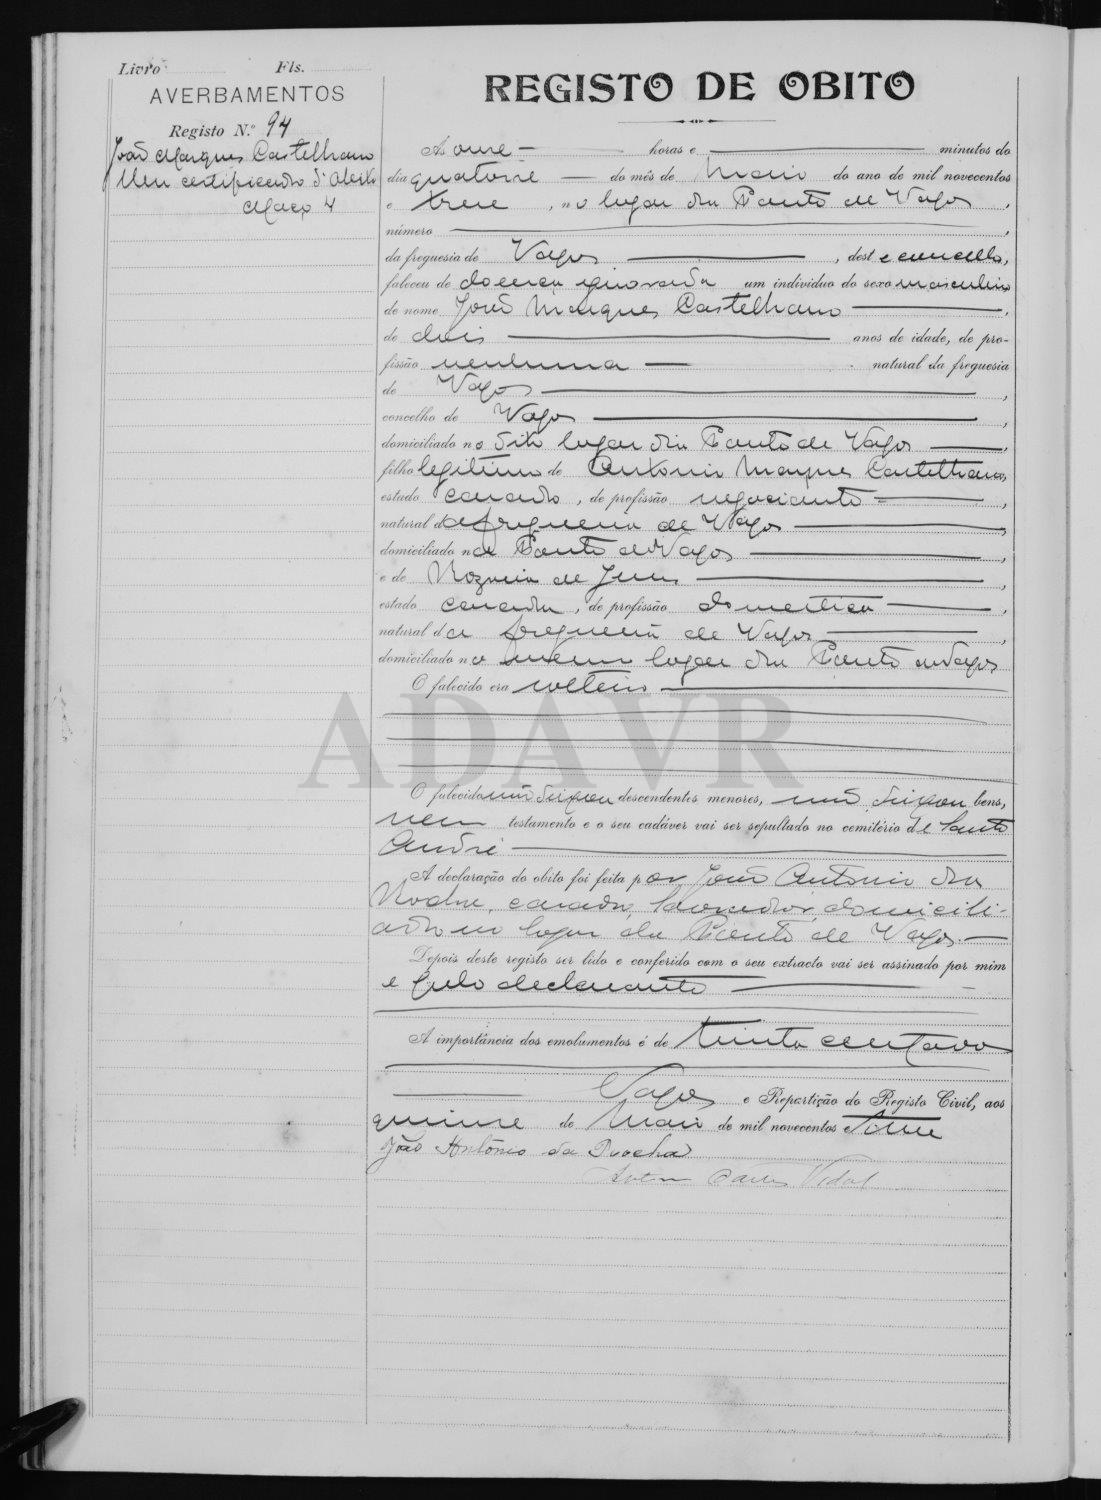 Livro Fls.
AVERBAMENTOS
Registo N.º 94
João Marques Castelhano
Um certificado d'obito
Maço 4
REGISTO DE OBITO
Às onze horas e minutos do
dia quatorze do mês de Maio do ano de mil novecentos
e treze, no lugar da Ponte de Vagos,
número
da freguesia de Vagos, deste concelho,
faleceu de doença ignorada um individuo do sexo masculino
de nome João Marques Castelhano,
de dois anos de idade, de pro-
fissão nenhuma natural da freguesia
de Vagos,
concelho de Vagos,
domiciliado no dito lugar da Ponte de Vagos,
filho legitimo de Antonio Marques Castelhano,
estado casado, de profissão negociante,
natural da freguesia de Vagos,
domiciliado na Ponte de Vagos,
e de de Jesus,
estado casada, de profissão domestica,
natural da freguesia de Vagos,
domiciliado no mesmo lugar da Ponte de Vagos
O falecido era solteiro
ADAVR
O falecido não deixou descendentes menores, não deixou bens,
nem testamento e o seu cadáver vai ser sepultado no cemitério de Santo
André
A declaração do obito foi feita por João Antonio da
Rocha, casado, lavrador, domicili-
ado no lugar da Ponte de Vagos
Depois deste registo ser lido e conferido com o seu extracto vai ser assinado por mim
e pelo declarante
A importância dos emolumentos é de trinta centavos
Vagos e Repartição do Registo Civil, aos
quinze de Maio de mil novecentos e treze
João António da Rocha
Vidal